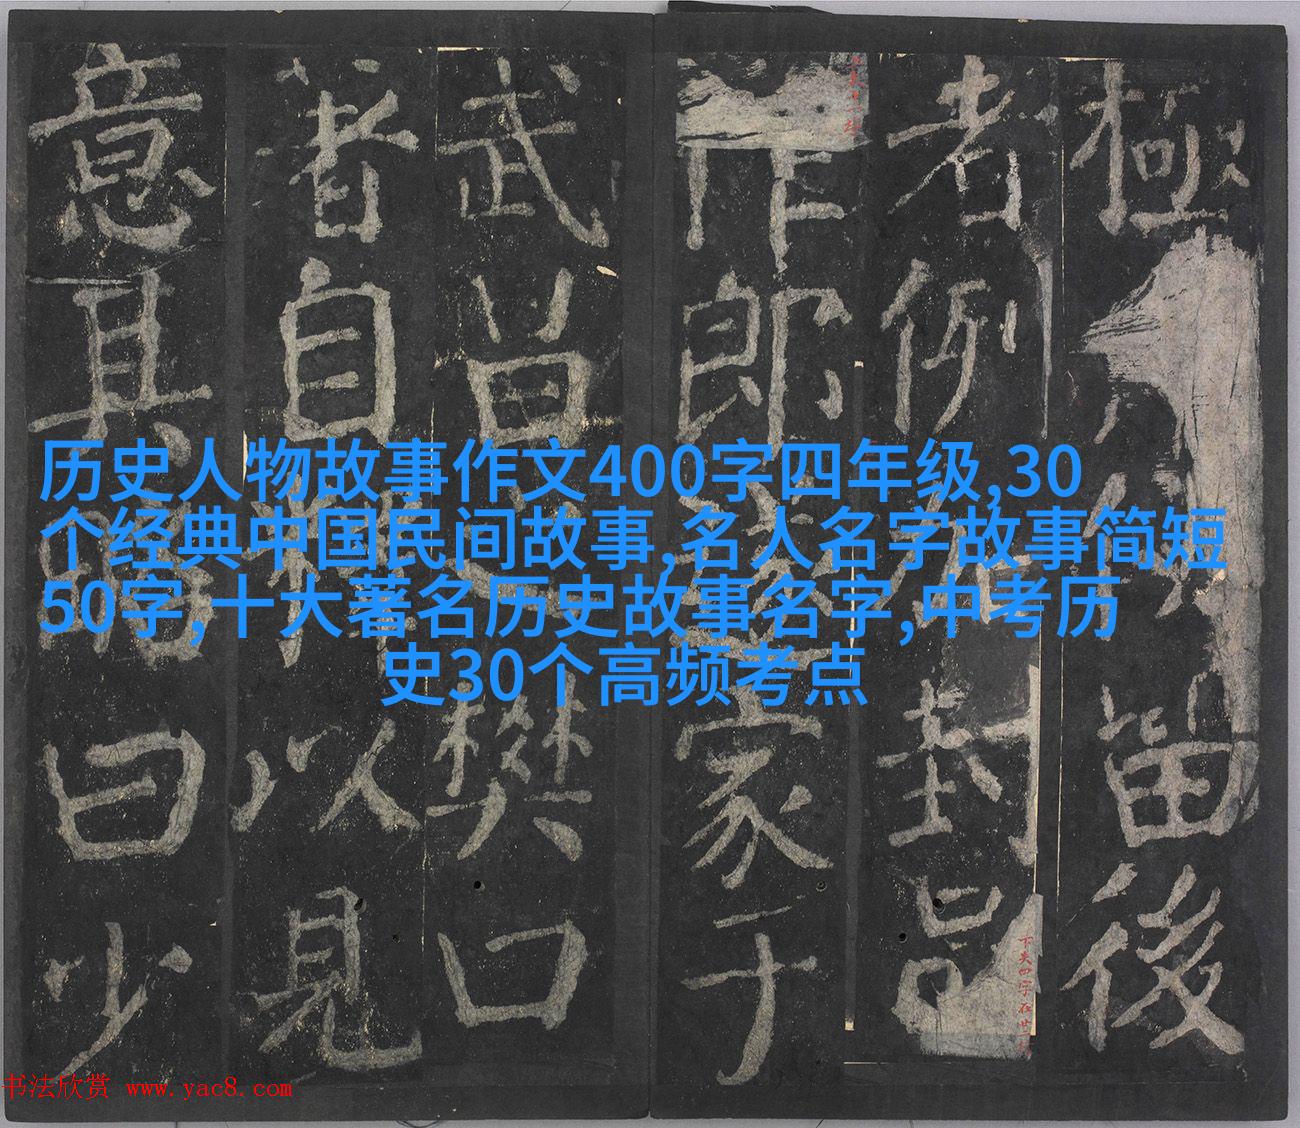 極留後
者例加封邑
作郎遂家于
武昌之樊口
著自釋以見
意其略曰少
历史人物故事作文400字四年级,30
个经典中国民间故事,名人名字故事简短
50字,十大著名历史故事名字,中考历
史30个高频考点
下失四字在廿
书法欣赏 www.yac8.com